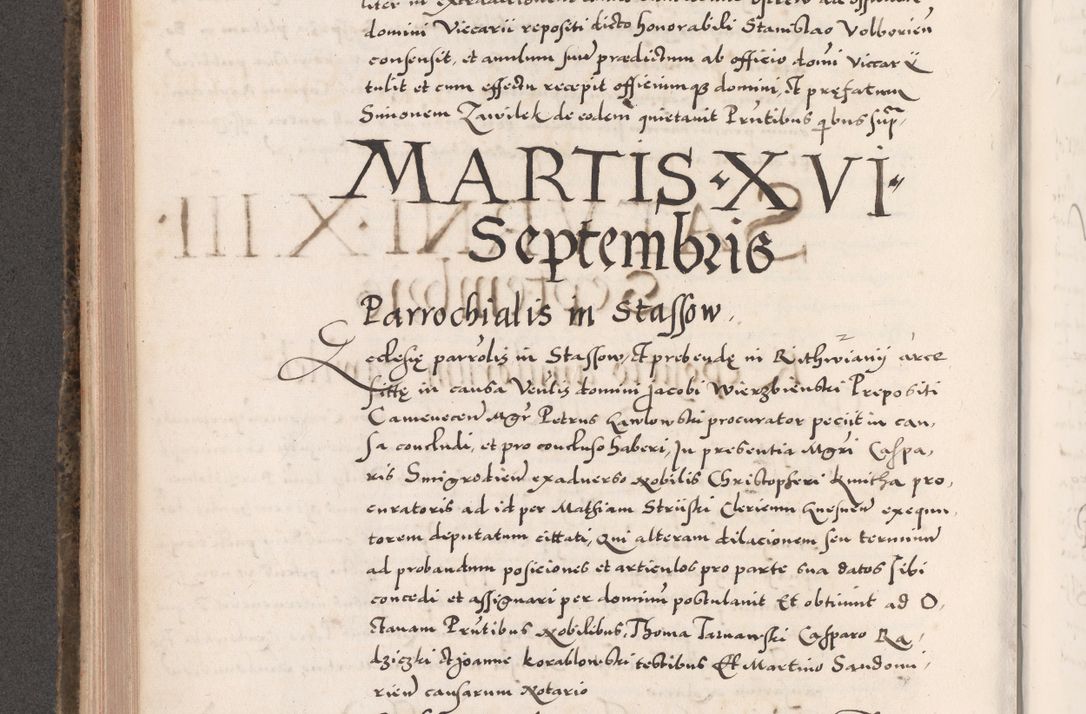 domini Viccarii repositi dicto honorabili Stanislao Volborien̄
consensit, et anulum suū prædictum ab officio dom̄i Viccarij
tulit et cum effectu recepit officiumq3 domini, Et pręfatum
Simonem Zawilek de eodem quietauit Prn̄tibus qbus sup̄,
MARTIS XVI
Septembris
Parrochialis in Stassow,
Ecclesię parrōlis in Stassow, Et prebendę in Rithwianij arce
sittę in causa Ven̄lis domini Jacobi Wierzbienski Prepositi
Camenecen̄ Mgr̄ Petrus Gawlowski procurator peciit in cau,
sa concludi, et pro concluso haberi, In presentia Mgr̄i Caspa,
ris Smigrodien̄ exaduerso Nobilis Christopheri Kmitha pro,
curatoris ad id per Mathiam Strijski Clericum Gnesnen̄ exequu,
torem deputatum cittati, Qui alteram dilacionem seu terminū
ad probandum posiciones et articulos pro parte sua datos sibi
concedi et assignari per dominū postulauit Et obtinuit ad O,
ctauam Prn̄tibus Nobilibus, Thoma Tarnawski Casparo Ra,
dziczki Et Joanne Korablowski testibus Et Martino Sandomi,
rien̄ causarum Notario